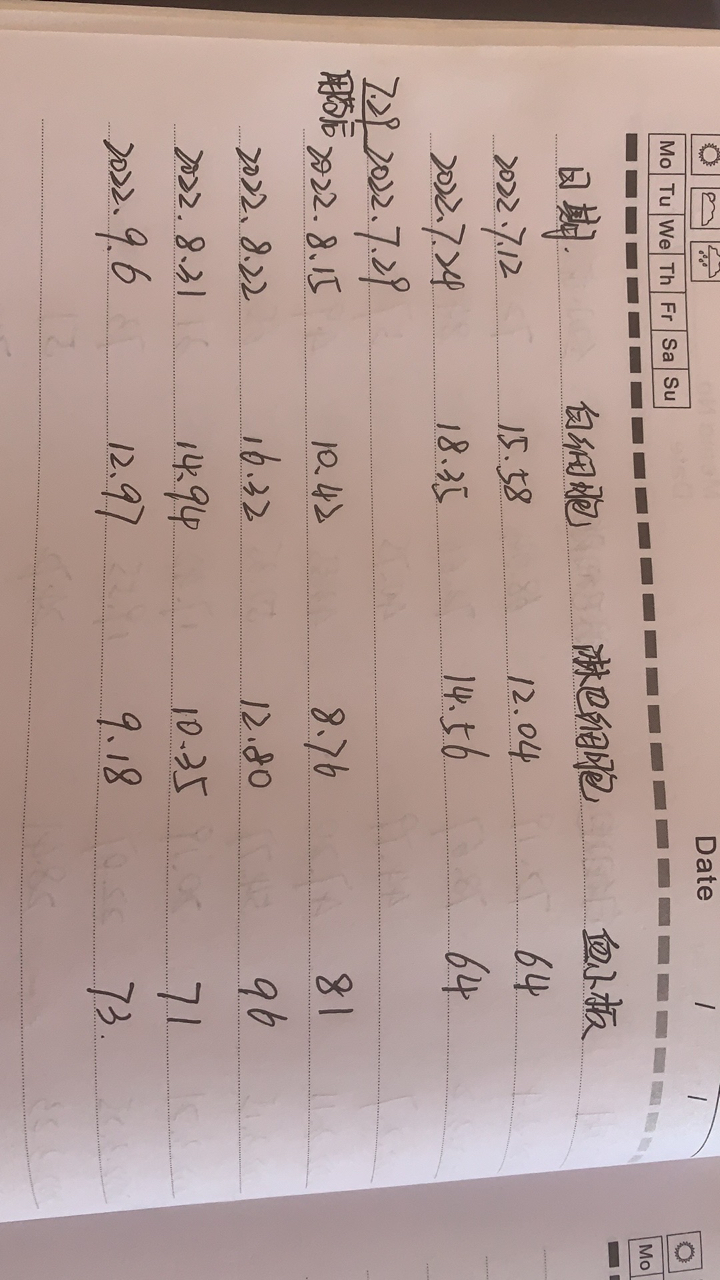 Mo Tu We Th Fr Sa Su
Date / /
日期. 白细胞 淋巴细胞 血小板
2022.7.12 15.58 12.04 64
2022.7.28 18.35 14.56 64
7.29 2022.7.29
用药后 2022.8.15 10.42 8.76 81
2022.8.22 16.32 12.80 96
2022.8.31 14.94 10.35 71
2022.9.6 12.97 9.18 73.
Mo